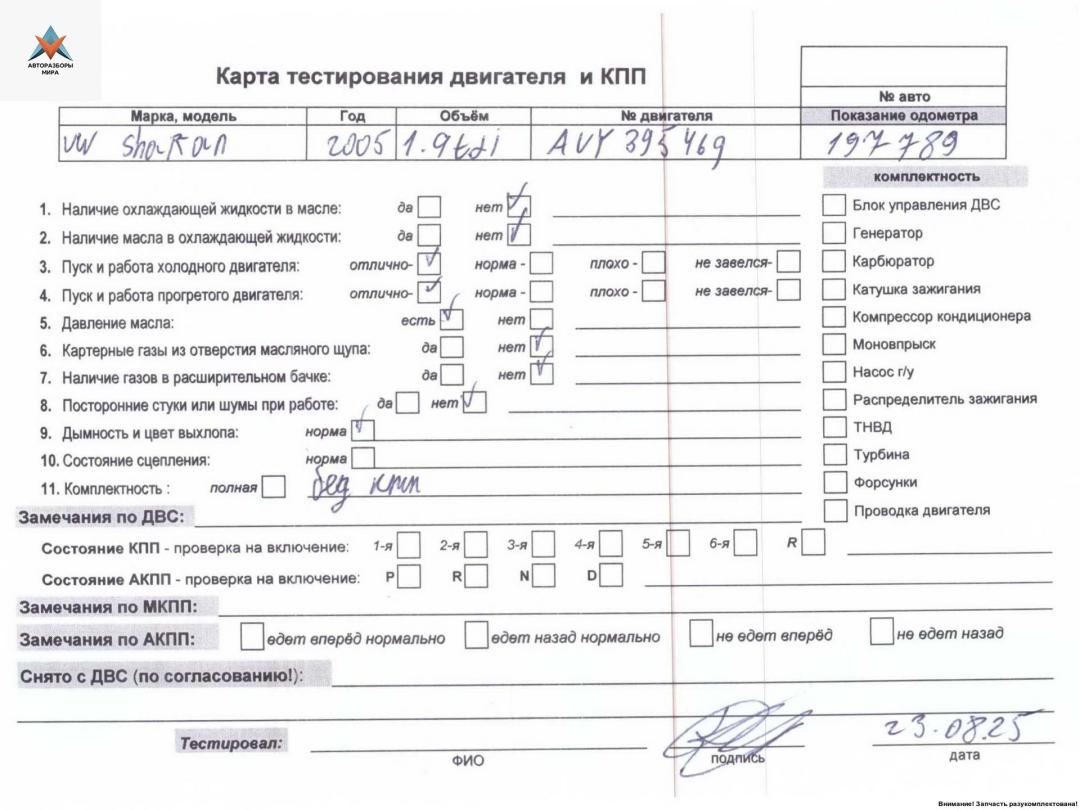 АВТОРАЗБОРЫ
МИРА
Карта тестирования двигателя и КПП
№ авто
Марка, модель Год Объём № двигателя Показание одометра
VW Sharan 2005 1.9tdi AVY 395469 197789
комплектность
1. Наличие охлаждающей жидкости в масле: да нет
Блок управления ДВС
2. Наличие масла в охлаждающей жидкости: да нет
Генератор
3. Пуск и работа холодного двигателя: отлично- норма - плохо - не завелся-
Карбюратор
4. Пуск и работа прогретого двигателя: отлично- норма - плохо - не завелся-
Катушка зажигания
5. Давление масла: есть нет
Компрессор кондиционера
6. Картерные газы из отверстия масляного щупа: да нет
Моновпрыск
7. Наличие газов в расширительном бачке: да нет
Насос г/у
8. Посторонние стуки или шумы при работе: да нет
Распределитель зажигания
9. Дымность и цвет выхлопа: норма
ТНВД
10. Состояние сцепления: норма
Турбина
11. Комплектность : полная без кпп
Форсунки
Замечания по ДВС:
Проводка двигателя
Состояние КПП - проверка на включение: 1-я 2-я 3-я 4-я 5-я 6-я R
Состояние АКПП - проверка на включение: P R N D
Замечания по МКПП:
Замечания по АКПП: едет вперёд нормально едет назад нормально не едет вперёд не едет назад
Снято с ДВС (по согласованию!):
Тестировал:
23.08.25
ФИО подпись дата
Внимание! Запчасть разукомплектована!